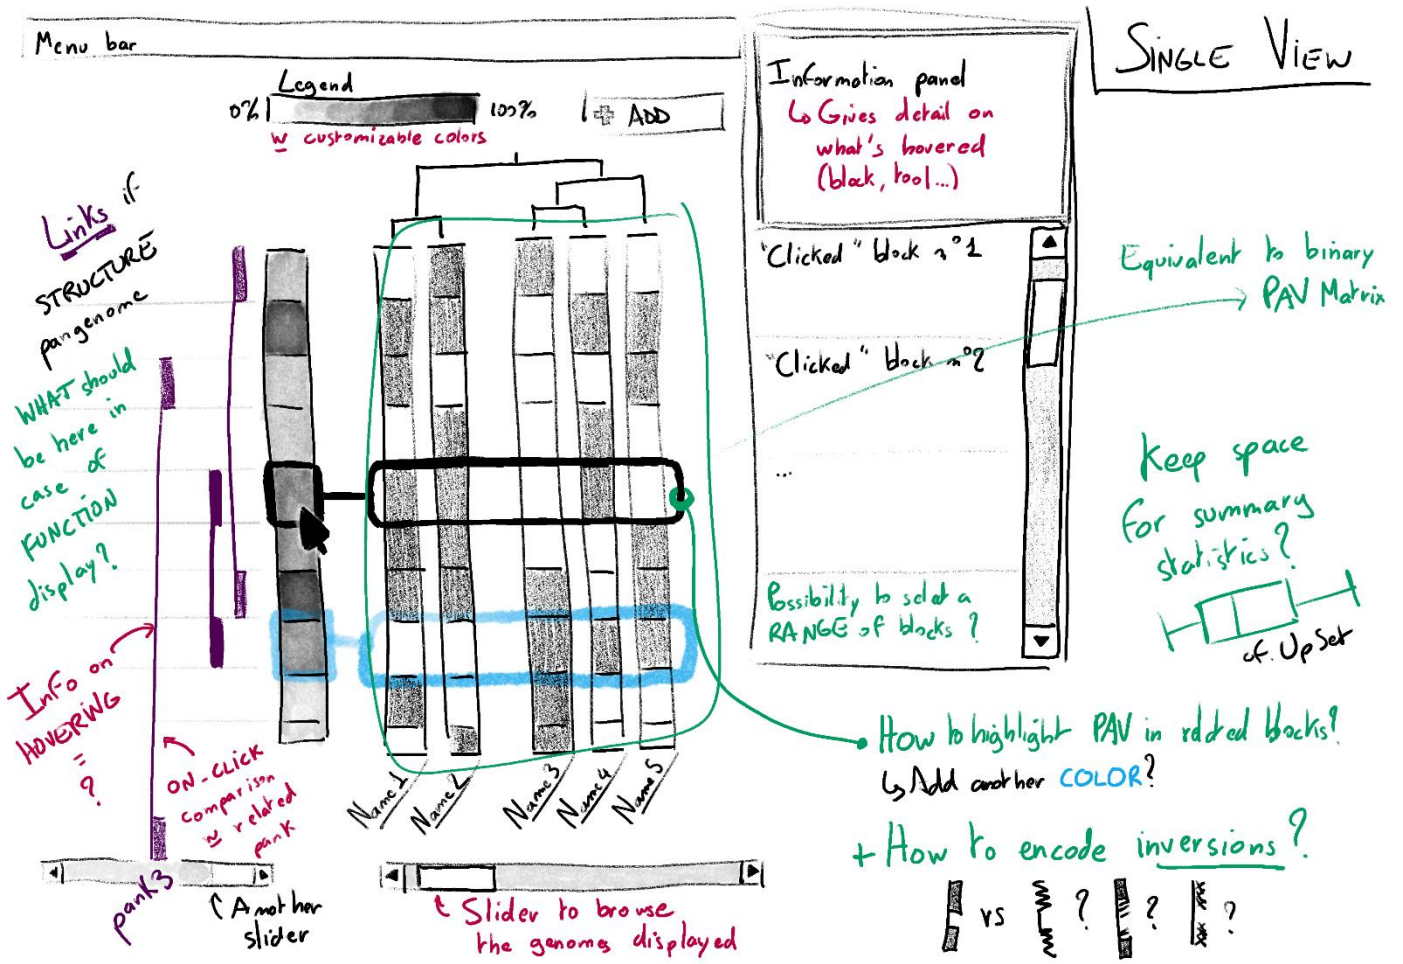 SINGLE VIEW
Menu bar
Legend
0%
100%
w customizable colors
+ ADD
Information panel
↳ Gives detail on
what's hovered
(block, tool...)
"Clicked" block n°1
"Clicked" block n°2
...
Possibility to select a
RANGE of blocks ?
Equivalent to binary
PAV Matrix
Keep space
for summary
statistics?
cf. UpSet
Links if
STRUCTURE
pangenome
WHAT should
be here in
case of
FUNCTION
display?
Info on
HOVERING
=
?
ON_CLICK
comparison
w related
pank
pank3
Another
slider
Name1
Name2
Name3
Name4
Name5
Slider to browse
the genomes displayed
How to highlight PAV in related blocks?
↳ Add another COLOR?
+ How to encode inversions?
vs ? ? ?